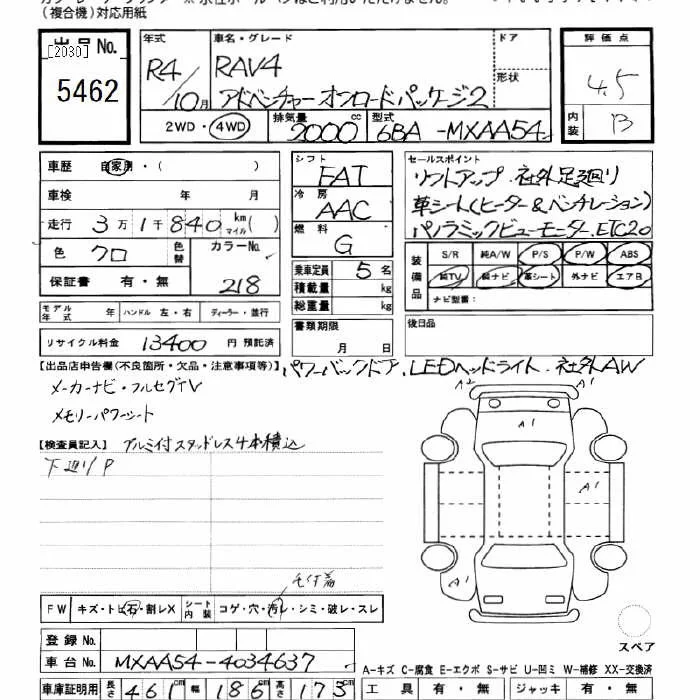 (複合機)対応用紙
出品No.
[2030]
5462
年式
R4/10月
車名・グレード
RAV4
アドベンチャーオンロードパッケージ2
ドア
形状
評価点
4.5
内装
B
2WD・4WD
排気量
2000cc
型式
6BA-MXAA54
車歴 自家用・( )
車検 年 月
走行 3万1千840 km マイル( )
色 クロ 色替 カラーNo. 218
保証書 有・無
シフト
FAT
冷房
AAC
燃料
G
乗車定員 5名
積載量 kg
総重量 kg
書類期限
月 日
セールスポイント
リフトアップ.社外足廻り
革シート(ヒーター&ベンチレーション)
パノラミックビューモニター.ETC2.0
装備品
S/R 純A/W P/S P/W ABS
純TV 純ナビ 革シート 外ナビ エアB
ナビ型番:
後日品
モデル年式 年 ハンドル 左・右 ディーラー・並行
リサイクル料金 13400 円 預託済
【出品店申告欄(不良箇所・欠品・注意事項等)】
パワーバックドア.LEDヘッドライト.社外AW
メーカーナビ・フルセグTV
メモリーパワーシート
【検査員記入】
アルミ付スタッドレス4本積込
下廻りP
A2
A1
A1
A1
A1
FW キズ・トビ石・割レX シート内装 コゲ・穴・汚レ・シミ・破レ・スレ
スペア
登録No.
車台No. MXAA54-4034637
車庫証明用 長さ 461cm 幅 186cm 高さ 173cm
A-キズ C-腐食 E-エクボ S-サビ U-凹ミ W-補修 XX-交換済
工具 有・無 ジャッキ 有・無